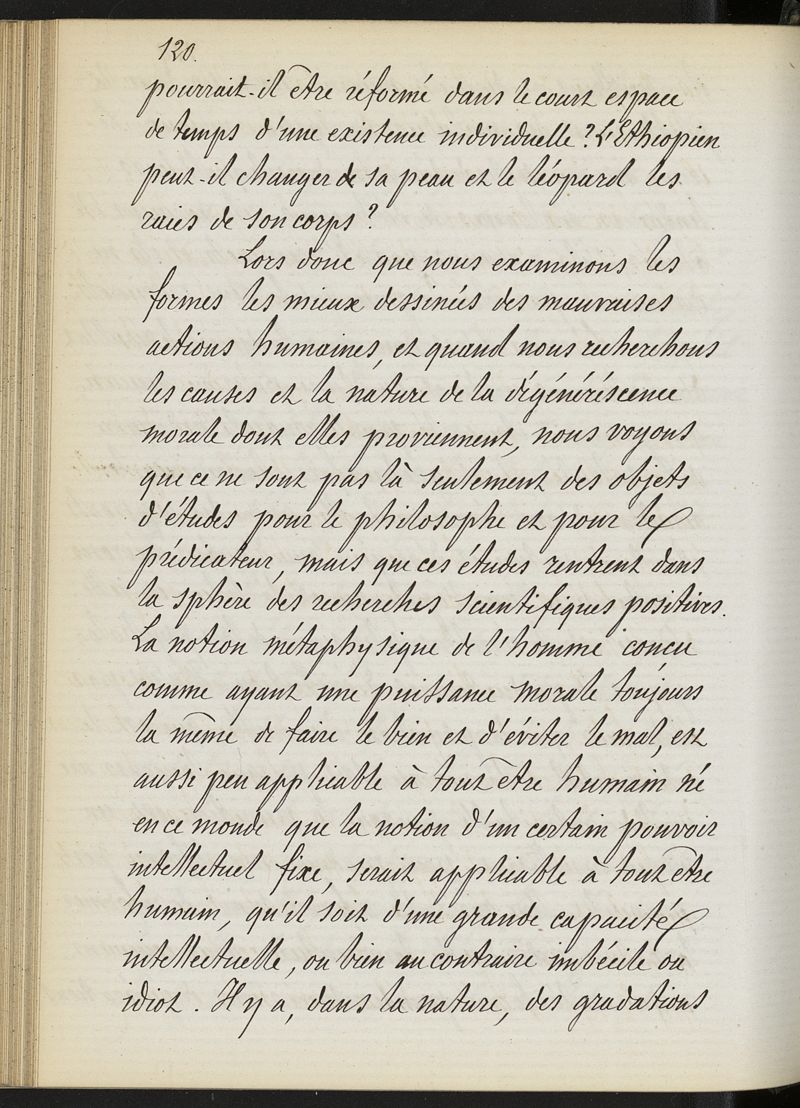 120.
pourrait-il être réformé dans le court espace
de temps d'une existence individuelle ? L'Ethiopien
peut-il changer de sa peau et le léopard les
raies de son corps ?
Lors donc que nous examinons les
formes les mieux dessinées des mauvaises
actions humaines, et quand nous recherchons
les causes et la nature de la dégénéréscence
morale dont elles proviennent, nous voyons
que ce ne sont pas là seulement des objets
d'études pour le philosophe et pour le
prédicateur, mais que ces études rentrent dans
la sphère des recherches scientifiques positives.
La notion métaphysique de l'homme concu
comme ayant une puissance morale toujours
la même de faire le bien et d'éviter le mal, est
aussi peu applicable à tout être humain né
en ce monde que la notion d'un certain pouvoir
intellectuel fixe, serait applicable à tout être
humain, qu'il soit d'une grande capacité
intellectuelle, ou bien au contraire imbécile ou
idiot. Il y a, dans la nature, des gradations